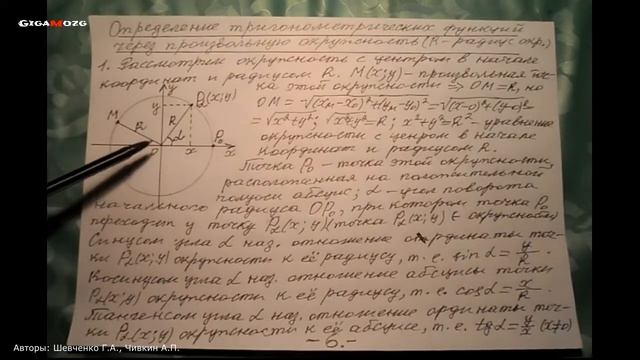 GIGAMOZG
Определение тригонометрических функций
через произвольную окружность (R – радиус окр.)
1. Рассмотрим окружность с центром в начале
координат и радиусом R. M(x;y) – произвольная точ-
ка этой окружности ⇒ OM=R, но
OM=√(xм-x₀)²+(yм-y₀)²=√(x-0)²+(y-0)²=
=√x²+y²; √x²+y²=R; x²+y²=R² – уравнение
окружности с центром в начале
координат и радиусом R.
y
y
Pα(x;y)
M
R
R
α
P₀
O
x
x
Точка P₀ – точка этой окружности,
расположенная на положительной
полуоси абсцисс; α – угол поворота
начального радиуса OP₀, при котором точка P₀
переходит у точку Pα(x;y) (точка Pα(x;y) ∈ окружности)
Синусом угла α наз. отношение ординаты точ-
ки Pα(x;y) окружности к её радиусу, т.е. sin α = y/R.
Косинусом угла α наз. отношение абсцисы точки
Pα(x;y) окружности к её радиусу, т.е. cos α = x/R.
Тангенсом угла α наз. отношение ординаты точ-
ки Pα(x;y) окружности к её абсцисе, т.е. tg α = y/x (x≠0)
-6.-
Авторы: Шевченко Г.А., Чивкин А.П.